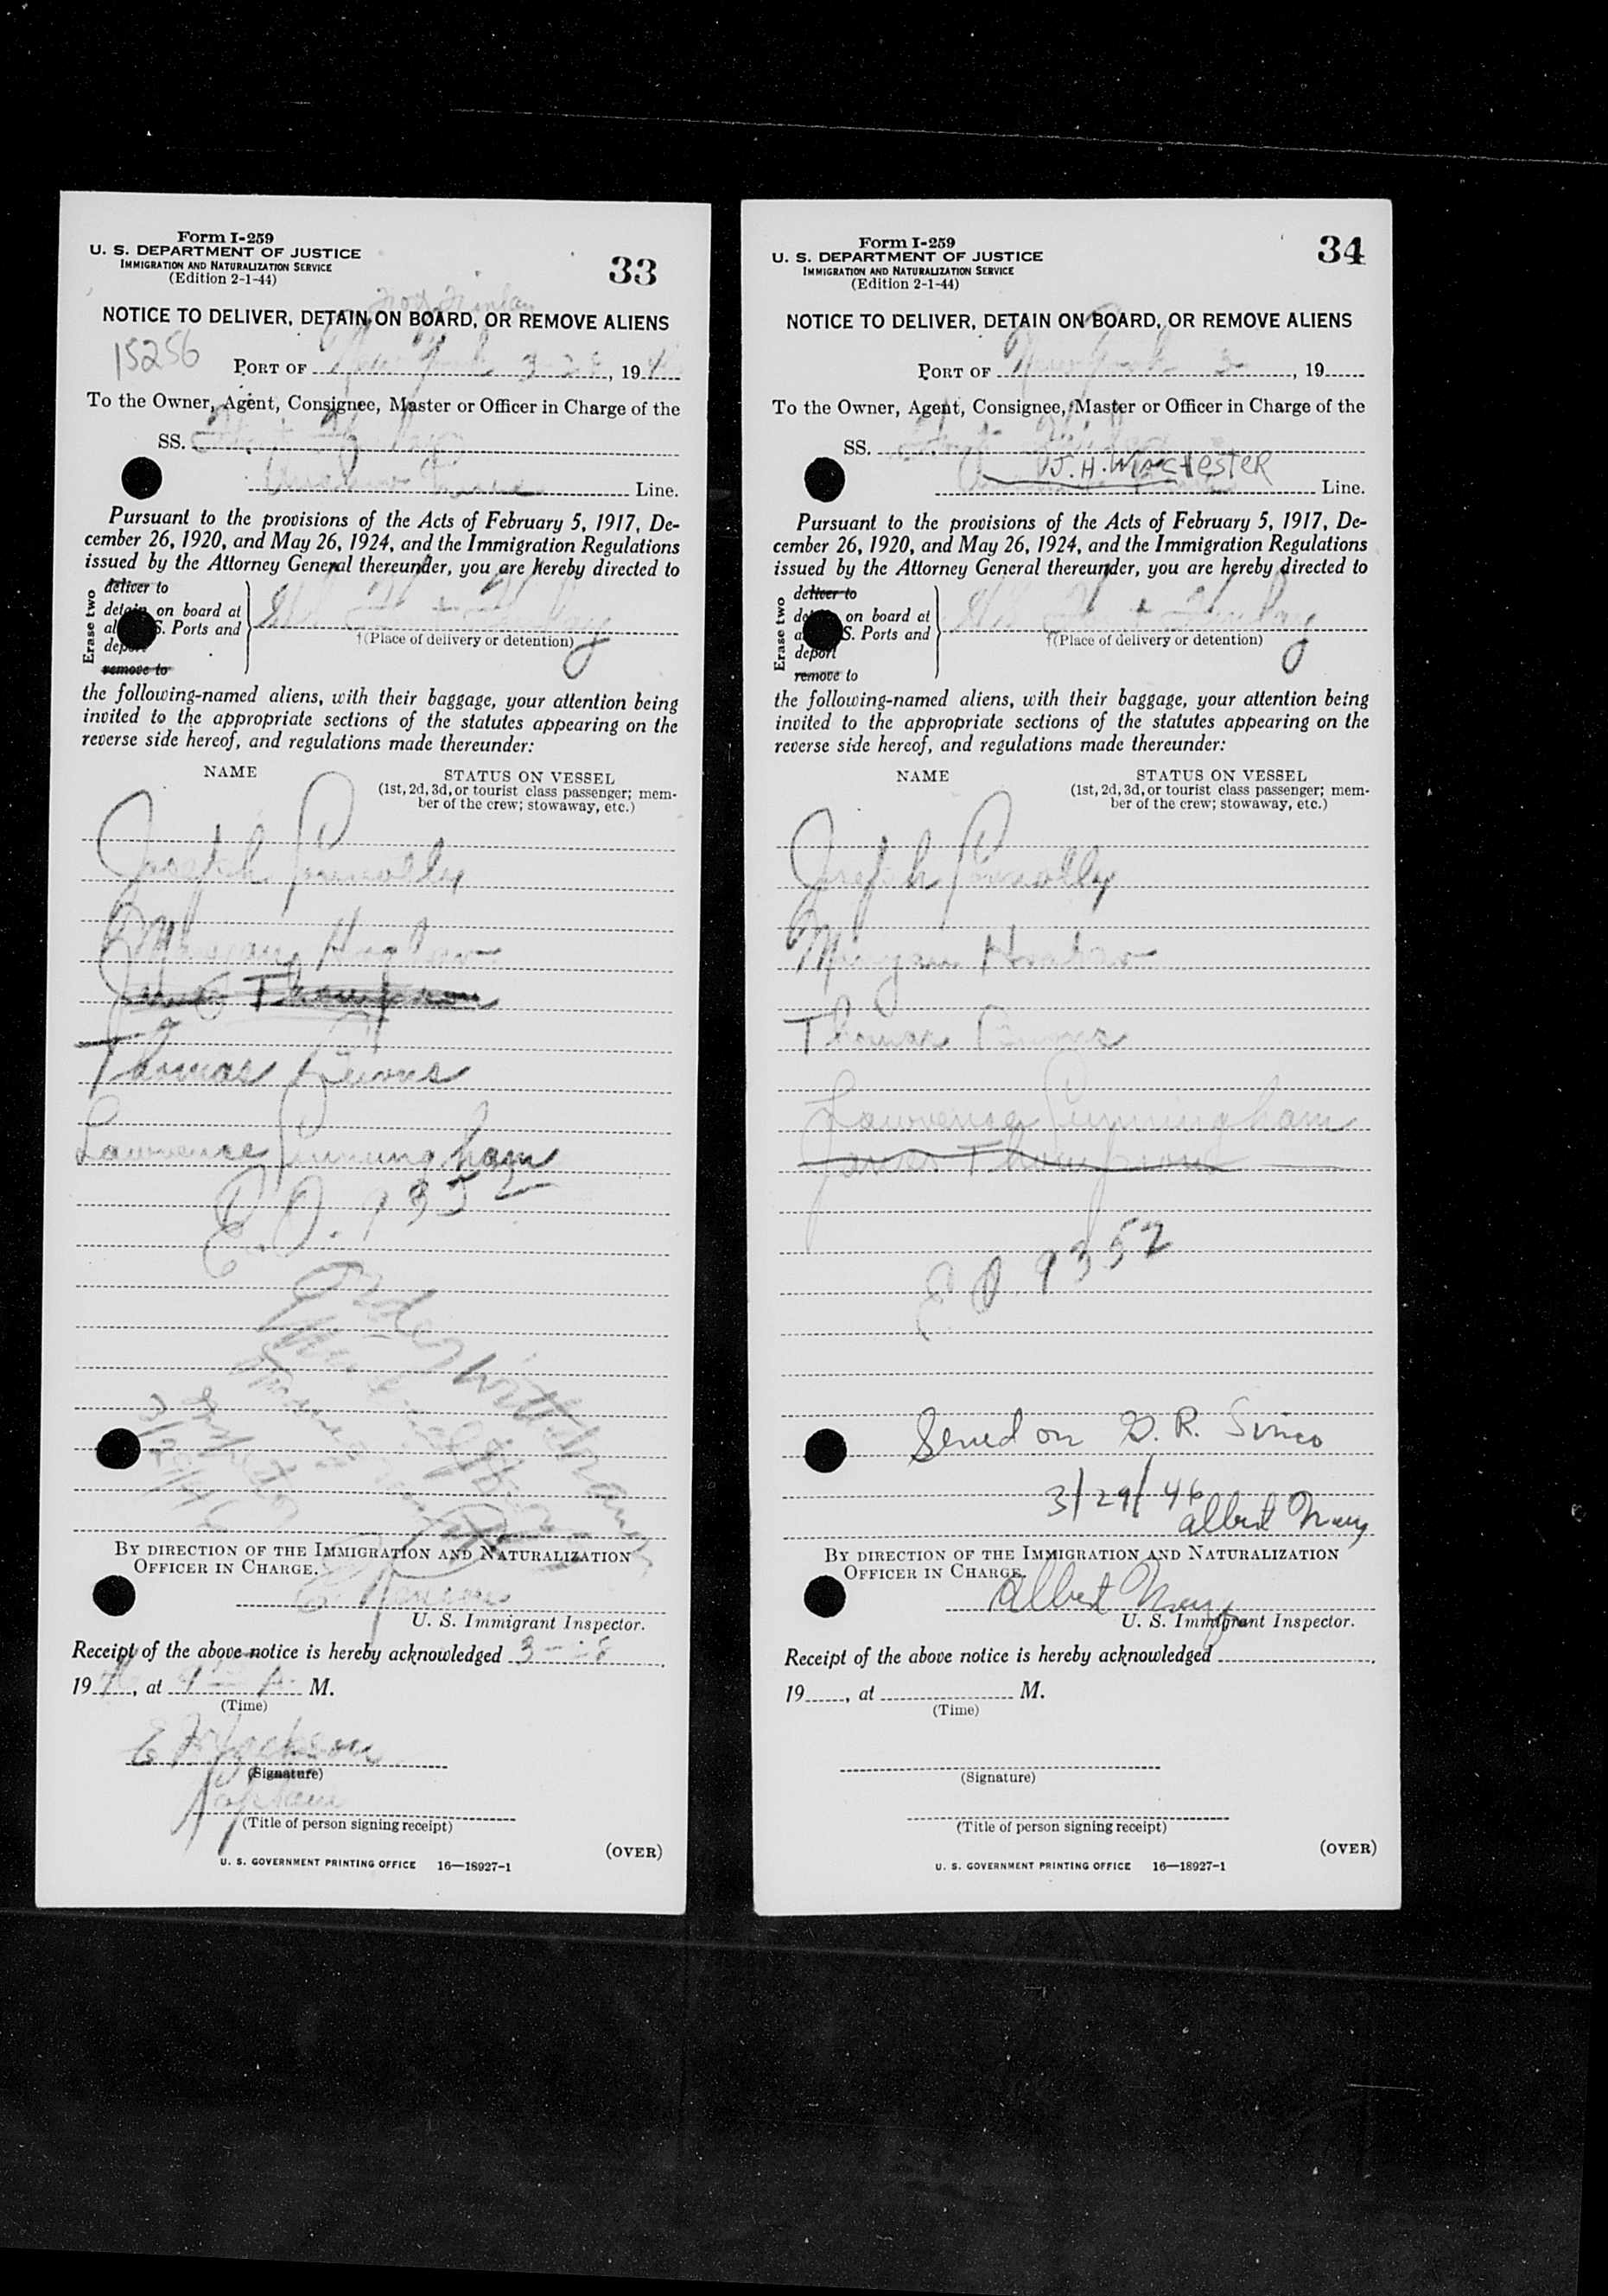 Form I-259
U. S. DEPARTMENT OF JUSTICE
IMMIGRATION AND NATURALIZATION SERVICE
(Edition 2-1-44)
33
NOTICE TO DELIVER, DETAIN ON BOARD, OR REMOVE ALIENS
15256
PORT OF New York 3-28, 19
To the Owner, Agent, Consignee, Master or Officer in Charge of the
SS.
Line.
Pursuant to the provisions of the Acts of February 5, 1917, De-
cember 26, 1920, and May 26, 1924, and the Immigration Regulations
issued by the Attorney General thereunder, you are hereby directed to
Erase two
deliver to
detain on board at
S. Ports and
deport
remove to
†(Place of delivery or detention)
the following-named aliens, with their baggage, your attention being
invited to the appropriate sections of the statutes appearing on the
reverse side hereof, and regulations made thereunder:
NAME
STATUS ON VESSEL
(1st, 2d, 3d, or tourist class passenger; mem-
ber of the crew; stowaway, etc.)
Joseph Connolly
James Thompson
Thomas
Lawrence Cunningham
E.O. 9352
Order withdrawn
3/29/46
BY DIRECTION OF THE IMMIGRATION AND NATURALIZATION
OFFICER IN CHARGE.
U. S. Immigrant Inspector.
Receipt of the above notice is hereby acknowledged 3-28
19, at M.
(Time)
(Signature)
Captain
(Title of person signing receipt)
(OVER)
U. S. GOVERNMENT PRINTING OFFICE 16—18927-1
Form I-259
U. S. DEPARTMENT OF JUSTICE
IMMIGRATION AND NATURALIZATION SERVICE
(Edition 2-1-44)
34
NOTICE TO DELIVER, DETAIN ON BOARD, OR REMOVE ALIENS
PORT OF New York 3-, 19
To the Owner, Agent, Consignee, Master or Officer in Charge of the
SS.
J. H. WINCHESTER
Line.
Pursuant to the provisions of the Acts of February 5, 1917, De-
cember 26, 1920, and May 26, 1924, and the Immigration Regulations
issued by the Attorney General thereunder, you are hereby directed to
Erase two
deliver to
on board at
S. Ports and
deport
remove to
†(Place of delivery or detention)
the following-named aliens, with their baggage, your attention being
invited to the appropriate sections of the statutes appearing on the
reverse side hereof, and regulations made thereunder:
NAME
STATUS ON VESSEL
(1st, 2d, 3d, or tourist class passenger; mem-
ber of the crew; stowaway, etc.)
Joseph Connolly
Thomas
Lawrence Cunningham
James Thompson
E.O. 9352
Served on G. R. Simco
3/29/46
Albert May
BY DIRECTION OF THE IMMIGRATION AND NATURALIZATION
OFFICER IN CHARGE.
Albert May
U. S. Immigrant Inspector.
Receipt of the above notice is hereby acknowledged
19, at M.
(Time)
(Signature)
(Title of person signing receipt)
(OVER)
U. S. GOVERNMENT PRINTING OFFICE 16—18927-1